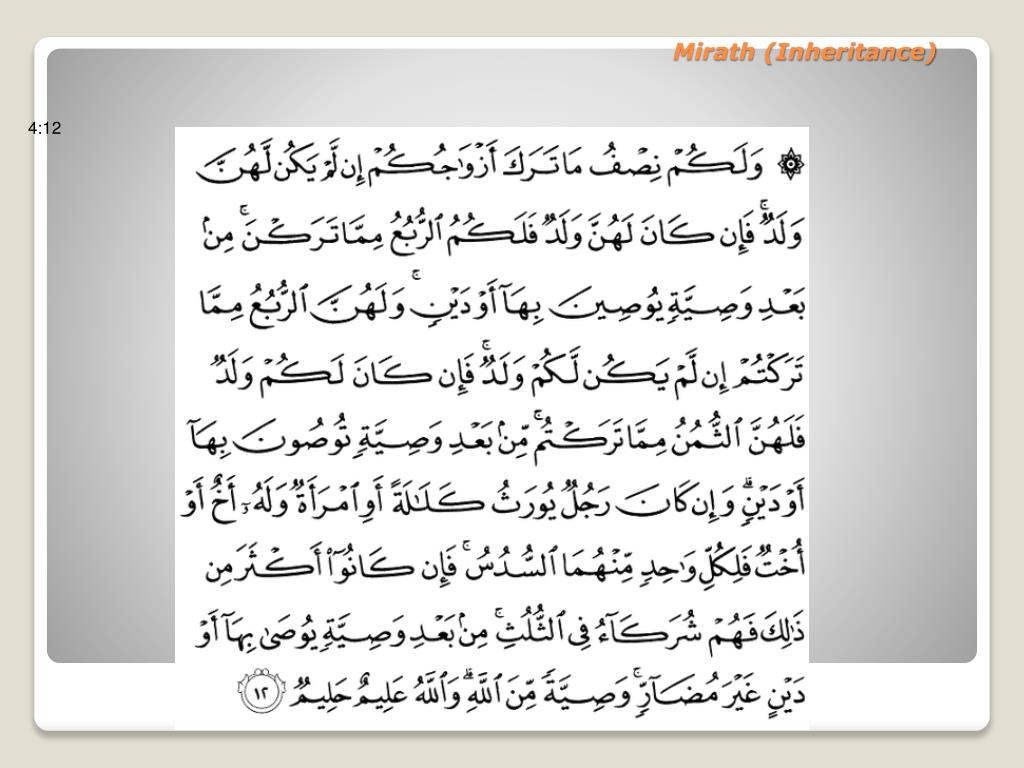 Mirath (Inheritance)
4:12
۞ وَلَكُمۡ نِصۡفُ مَا تَرَكَ أَزۡوَٰجُكُمۡ إِن لَّمۡ يَكُن لَّهُنَّ
وَلَدٞۚ فَإِن كَانَ لَهُنَّ وَلَدٞ فَلَكُمُ ٱلرُّبُعُ مِمَّا تَرَكۡنَۚ مِنۢ
بَعۡدِ وَصِيَّةٖ يُوصِينَ بِهَآ أَوۡ دَيۡنٖۚ وَلَهُنَّ ٱلرُّبُعُ مِمَّا
تَرَكۡتُمۡ إِن لَّمۡ يَكُن لَّكُمۡ وَلَدٞۚ فَإِن كَانَ لَكُمۡ وَلَدٞ
فَلَهُنَّ ٱلثُّمُنُ مِمَّا تَرَكۡتُمۚ مِّنۢ بَعۡدِ وَصِيَّةٖ تُوصُونَ بِهَآ
أَوۡ دَيۡنٖۗ وَإِن كَانَ رَجُلٞ يُورَثُ كَلَٰلَةً أَوِ ٱمۡرَأَةٞ وَلَهُۥٓ أَخٌ أَوۡ
أُخۡتٞ فَلِكُلِّ وَٰحِدٖ مِّنۡهُمَا ٱلسُّدُسُۚ فَإِن كَانُوٓاْ أَكۡثَرَ مِن
ذَٰلِكَ فَهُمۡ شُرَكَآءُ فِي ٱلثُّلُثِۚ مِنۢ بَعۡدِ وَصِيَّةٖ يُوصَىٰ بِهَآ أَوۡ
دَيۡنٍ غَيۡرَ مُضَآرّٖۚ وَصِيَّةٗ مِّنَ ٱللَّهِۗ وَٱللَّهُ عَلِيمٌ حَلِيمٞ ١٢